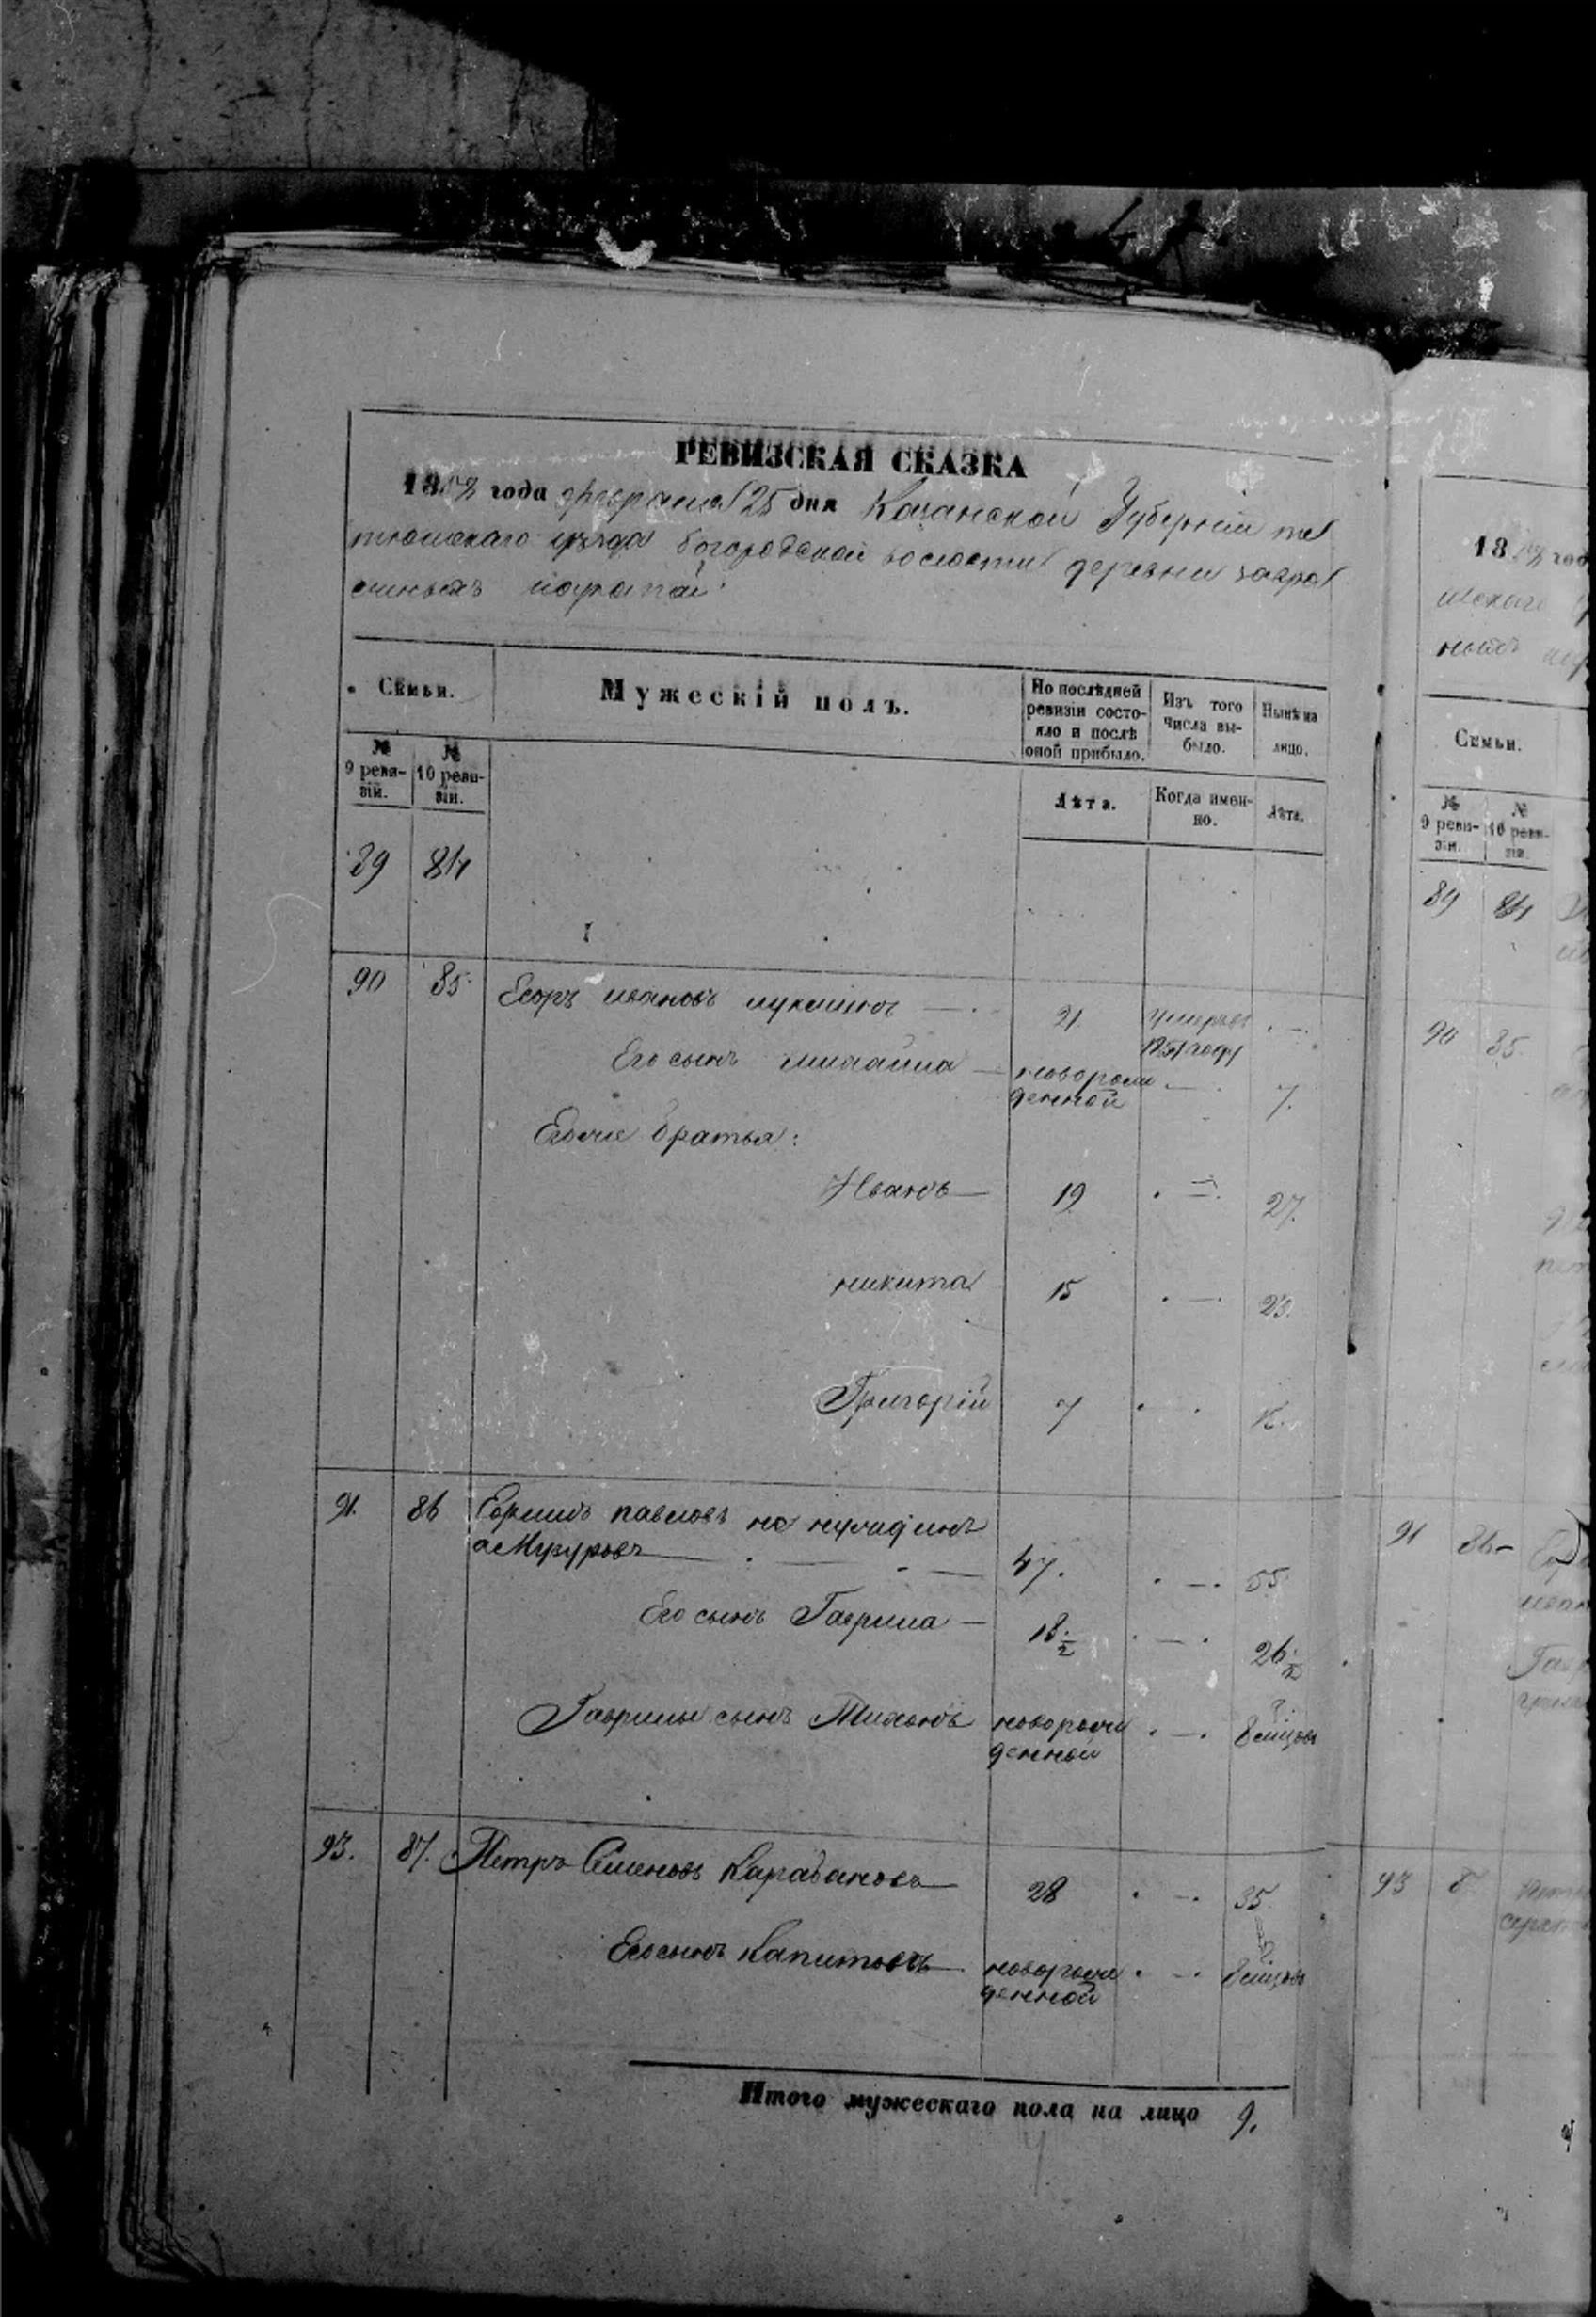 РЕВИЗСКАЯ СКАЗКА
1858 года февраля 25 дня Казанской Губернии те
тюшскаго уезда богородской волости деревни
Семьи.
Мужескій полъ.
По послѣдней ревизіи состо-яло и послѣ оной прибыло.
Изъ того числа вы-было.
Нынѣ на лицо.
№ 9 реви-зіи.
№ 10 реви-зіи.
Лѣта.
Когда имен-но.
Лѣта.
89 84
90 85 Егоръ ивановъ лукашинъ 21 умеръ въ 1851 году
Его сынъ михайла новорож денной 7.
Егоже братья:
Иванъ 19 27.
никита 15 23.
Григорій 7
91. 86 Ефимъ павловъ не
а Музуровъ 47. 55.
Его сынъ Гаврила 18 1/2 26 1/2
Гаврилы сынъ Тихонъ новорож денный 8 мѣцовъ
93. 87. Петръ Семеновъ Карабановъ 28 35
Его сынъ Капитонъ новорож денной 8 мѣцовъ
Итого мужескаго пола на лицо 9.
1858 год
Семьи.
№ 9 реви-зіи.
№ 10 реви-зіи.
89 84
90 85
91 86
93